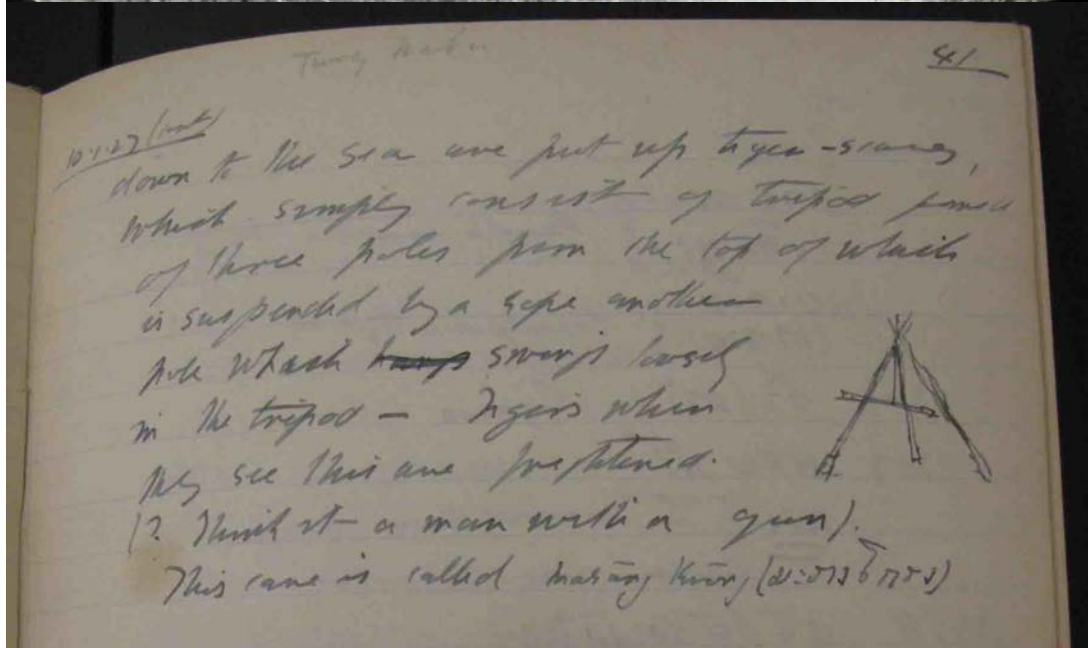 41
10.1.27 (cont)
down to the sea are put up tiger-scares,
which simply consist of tripod formed
of three poles from the top of which
is suspended by a rope another
pole which hangs swings loosely
in the tripod — Tigers when
they see this are frightened.
(? Think it a man with a gun).
This is called